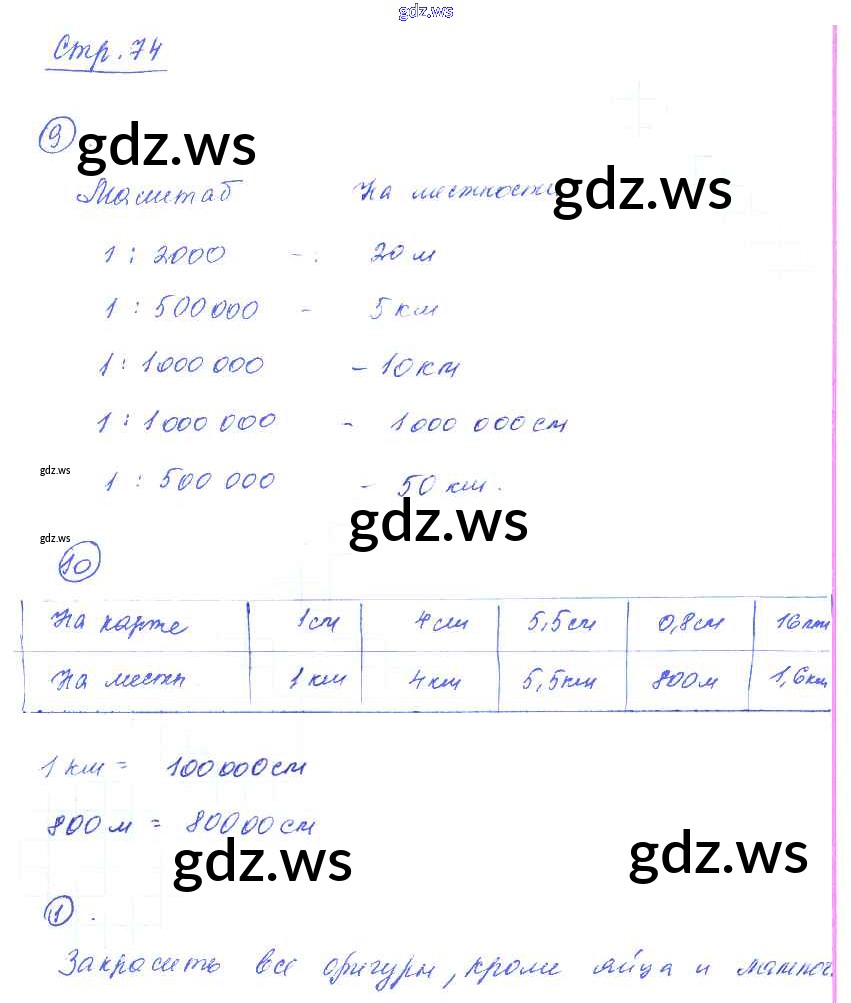 gdz.ws
Стр. 74
9 gdz.ws
Масштаб На местности gdz.ws
1 : 2000 - 20 м
1 : 500 000 - 5 км
1 : 1000 000 - 10 км
1 : 1 000 000 - 1 000 000 см
gdz.ws
1 : 500 000 - 50 км.
gdz.ws
gdz.ws
10
На карте 1 см 4 см 5,5 см 0,8 см 16 мм
На местн 1 км 4 км 5,5 км 800 м 1,6 км
1 км = 100 000 см
800 м = 80000 см
gdz.ws gdz.ws
11.
Закрасить все фигуры, кроме яйца и